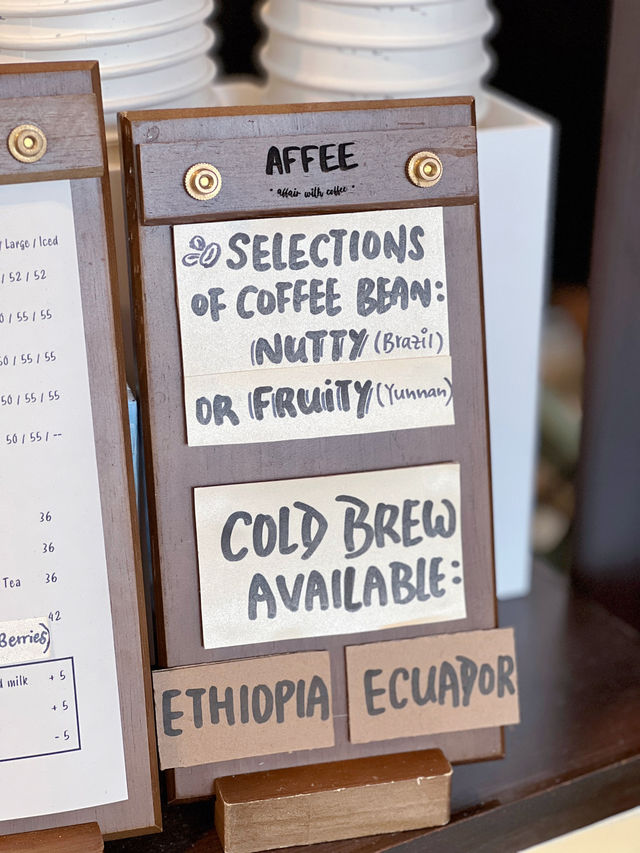 Large / Iced
/ 52 / 52
/ 55 / 55
/ 55 / 55
50 / 55 / 55
50 / 55 / --
36
36
Tea 36
42
Berries)
milk + 5
+ 5
- 5
AFFEE
affair with coffee
SELECTIONS
OF COFFEE BEAN:
NUTTY (Brazil)
OR FRUITY (Yunnan)
COLD BREW
AVAILABLE:
ETHIOPIA
ECUADOR